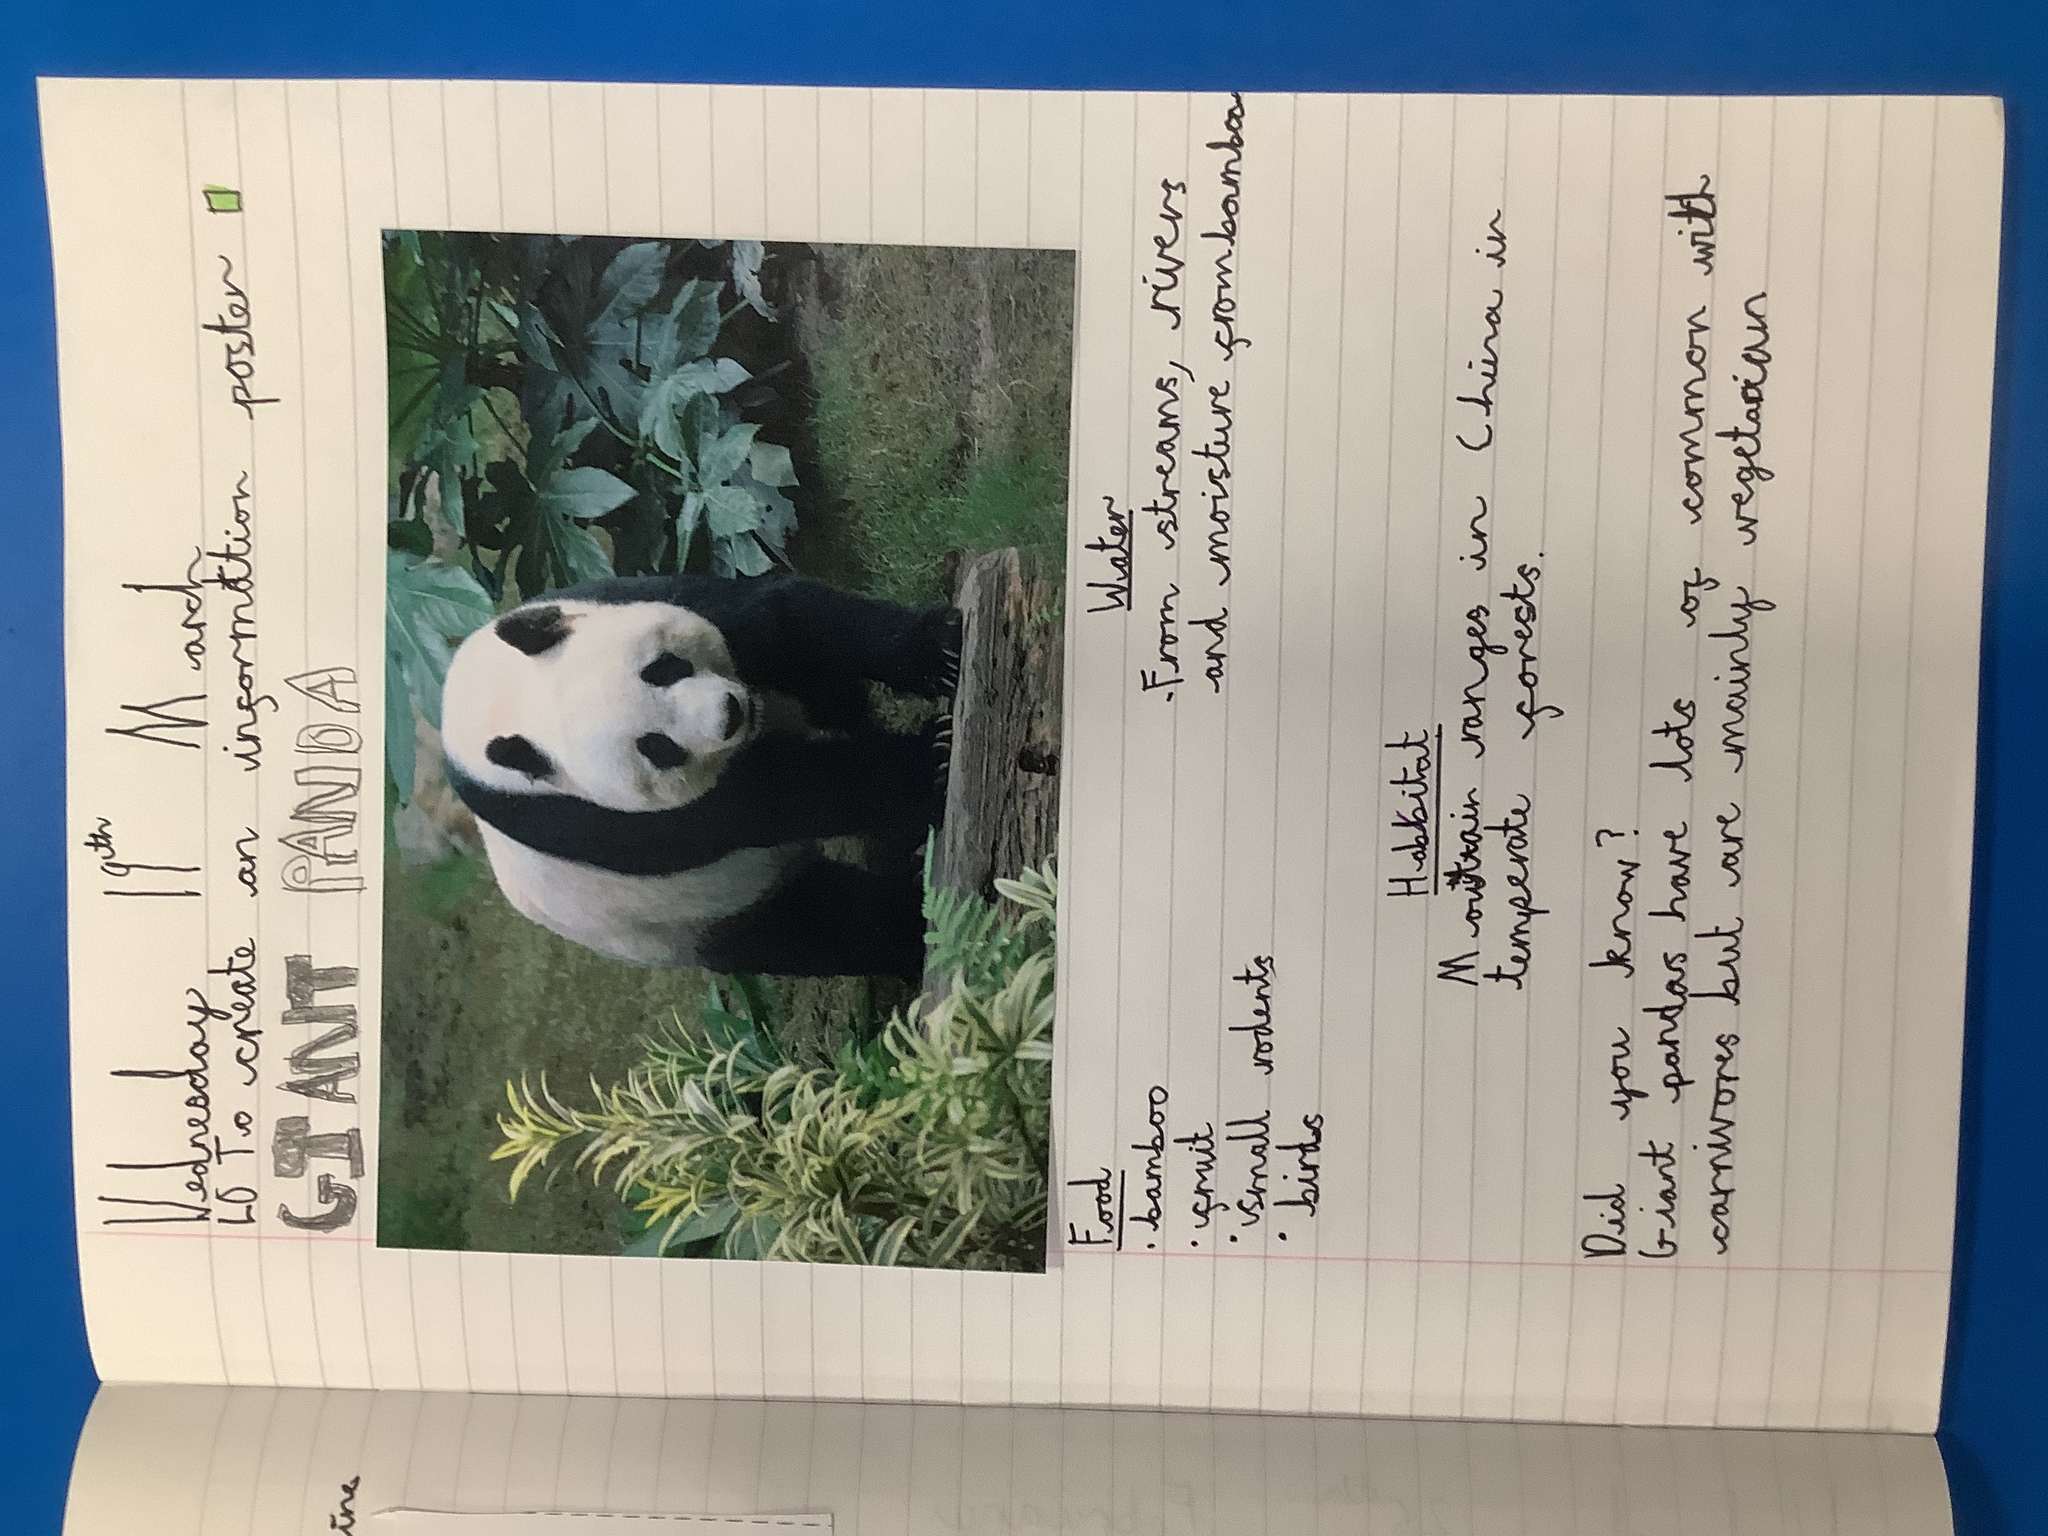 Wednesday 19th March
LO To create an information poster
GIANT PANDA
Food
· bamboo
· fruit
· small rodents
· birds
Water
· From streams, rivers
and moisture from bamboo
Habitat
Mountain ranges in China in
temperate forests.
Did you know?
Giant pandas have lots of common with
carnivores but are mainly vegetarian
ine